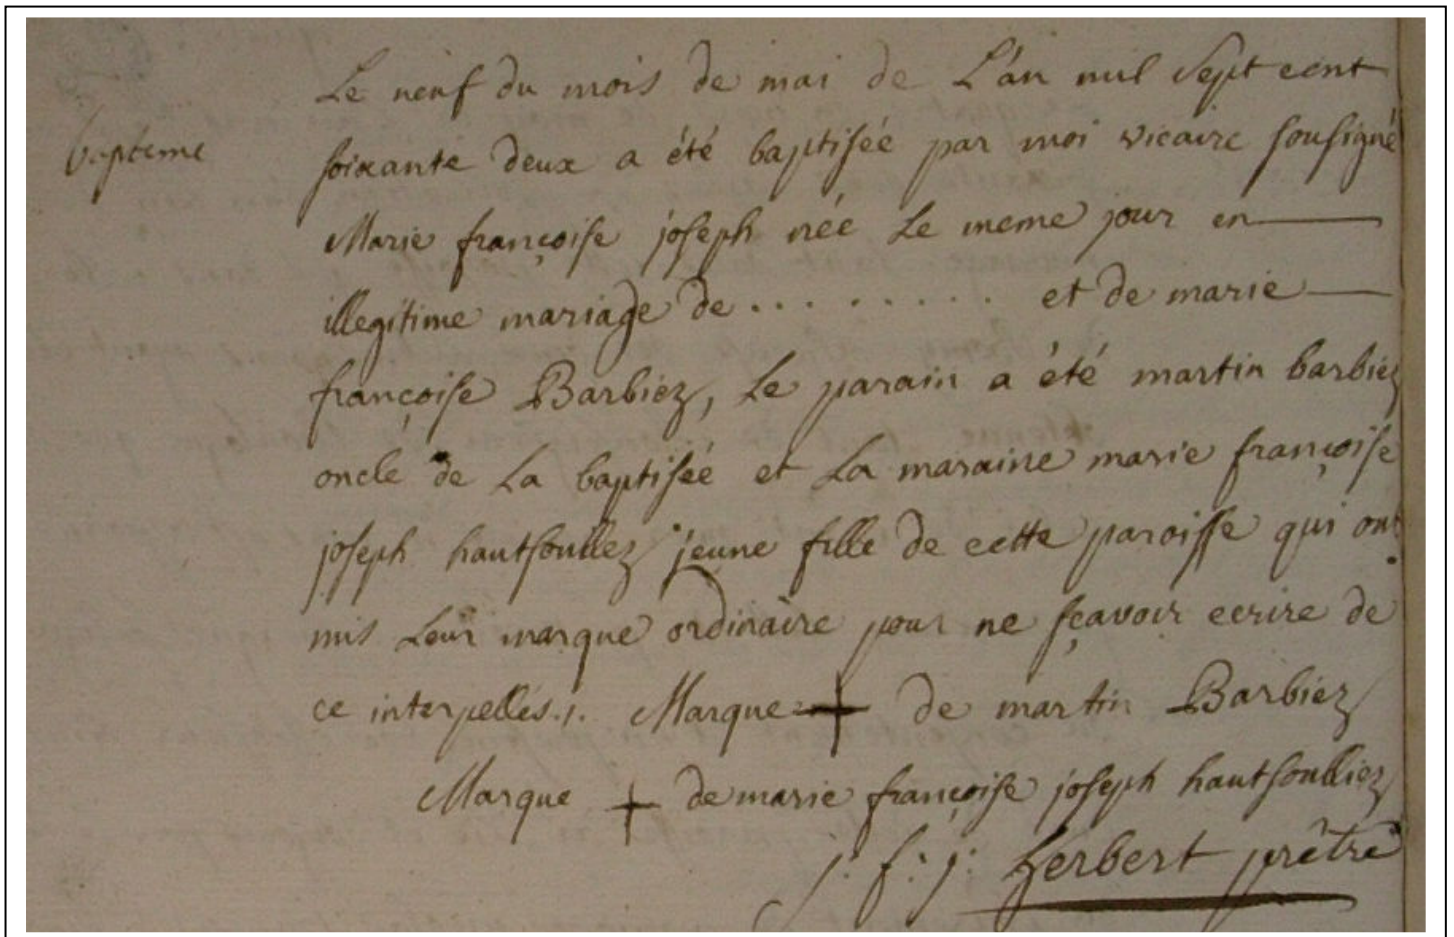 Le neuf du mois de mai de L'an mil sept cent
bapteme
soixante deux a été baptisée par moi vicaire sousigné
Marie françoise joseph née Le meme jour en
illegitime mariage de . . . . . . . . . et de marie
françoise Barbiez, Le parain a été martin barbiez
oncle de La baptisée et La maraine marie françoise
joseph hautsoullez jeune fille de cette paroisse qui ont
mis Leur marque ordinaire pour ne sçavoir ecrire de
ce interpellés./. Marque + de martin Barbiez
Marque + de marie françoise joseph hautsoulliez
j: f: j: herbert prêtre